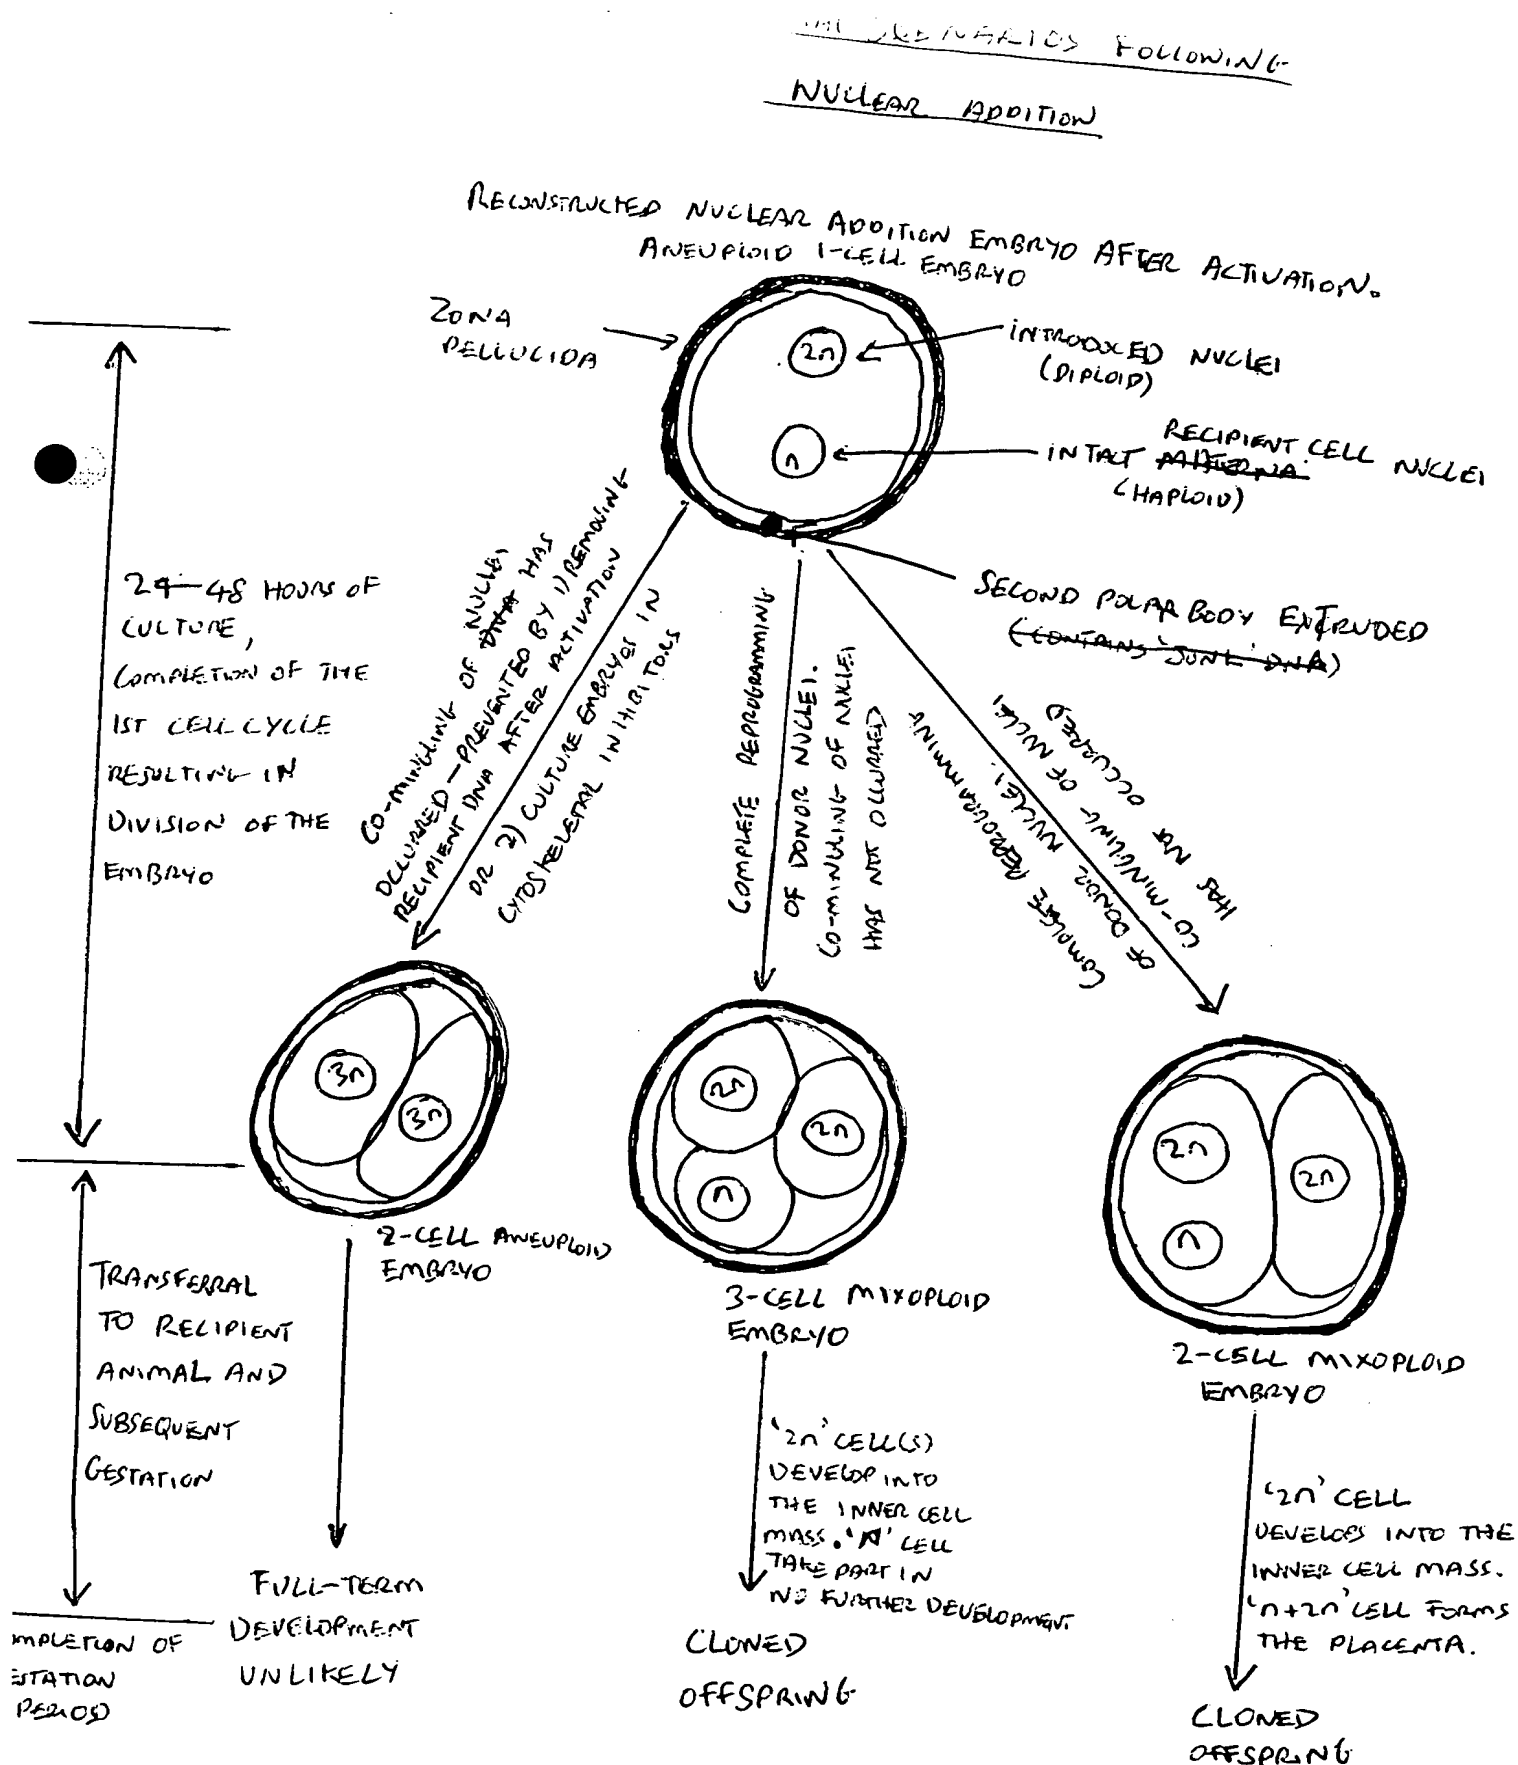 SCENARIOS FOLLOWING
NUCLEAR ADDITION
RECONSTRUCTED NUCLEAR ADDITION EMBRYO AFTER ACTIVATION.
ANEUPLOID 1-CELL EMBRYO
ZONA
PELLUCIDA
2n
INTRODUCED NUCLEI
(DIPLOID)
n
RECIPIENT CELL
INTACT MATERNA NUCLEI
(HAPLOID)
SECOND POLAR BODY EXTRUDED
(CONTAINS 'JUNK' DNA)
24-48 HOURS OF
CULTURE,
COMPLETION OF THE
1ST CELL CYCLE
RESULTING IN
DIVISION OF THE
EMBRYO
NUCLEI
CO-MINGLING OF DNA HAS
OCCURRED - PREVENTED BY 1) REMOVING
RECIPIENT DNA AFTER ACTIVATION
OR 2) CULTURE EMBRYOS IN
CYTOSKELETAL INHIBITORS
COMPLETE REPROGRAMMING
OF DONOR NUCLEI.
CO-MINGLING OF NUCLEI
HAS NOT OCCURRED
COMPLETE REPROGRAMMING
OF DONOR NUCLEI.
CO-MINGLING OF NUCLEI
HAS NOT OCCURRED
3n
3n
2-CELL ANEUPLOID
EMBRYO
2n
2n
n
3-CELL MIXOPLOID
EMBRYO
2n
2n
n
2-CELL MIXOPLOID
EMBRYO
TRANSFERRAL
TO RECIPIENT
ANIMAL AND
SUBSEQUENT
GESTATION
FULL-TERM
DEVELOPMENT
UNLIKELY
'2n' CELL(S)
DEVELOP INTO
THE INNER CELL
MASS. 'N' CELL
TAKE PART IN
NO FURTHER DEVELOPMENT
CLONED
OFFSPRING
'2n' CELL
DEVELOPS INTO THE
INNER CELL MASS.
'n+2n' CELL FORMS
THE PLACENTA.
CLONED
OFFSPRING
MPLETION OF
STATION
PERIOD